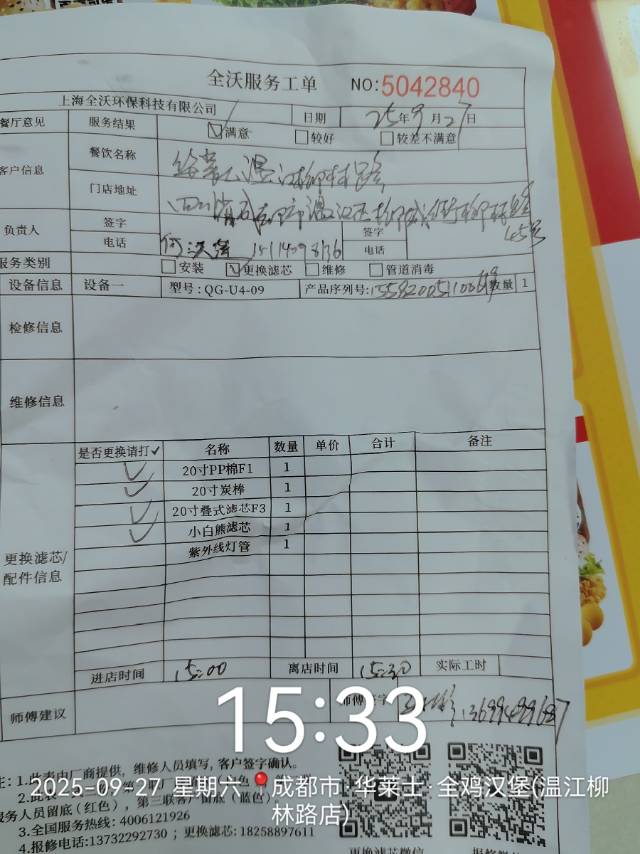 全沃服务工单 NO:5042840
上海全沃环保科技有限公司 日期 25年9月27日
餐厅意见 服务结果 ☑满意 □较好 □较差不满意
客户信息 餐饮名称
门店地址
45号
负责人 签字 签字
电话 电话
服务类别 □安装 ☑更换滤芯 □维修 □管道消毒
设备信息 设备一 型号:QG-U4-09 产品序列号: 数量 1
检修信息
维修信息
是否更换请打✓ 名称 数量 单价 合计 备注
✓ 20寸PP棉F1 1
✓ 20寸炭棒 1
✓ 20寸叠式滤芯F3 1
✓ 小白熊滤芯 1
紫外线灯管 1
更换滤芯/
配件信息
进店时间 15:00 离店时间 15:30 实际工时
师傅建议
15:33
注:1.此表由厂商提供,维修人员填写,客户签字确认。
2025-09-27 星期六 成都市·华莱士·全鸡汉堡(温江柳
林路店)
务人员留底(红色),第三联客户留底(蓝色)
3.全国服务热线:4006121926
4.报修电话:13732292730;更换滤芯:18258897611